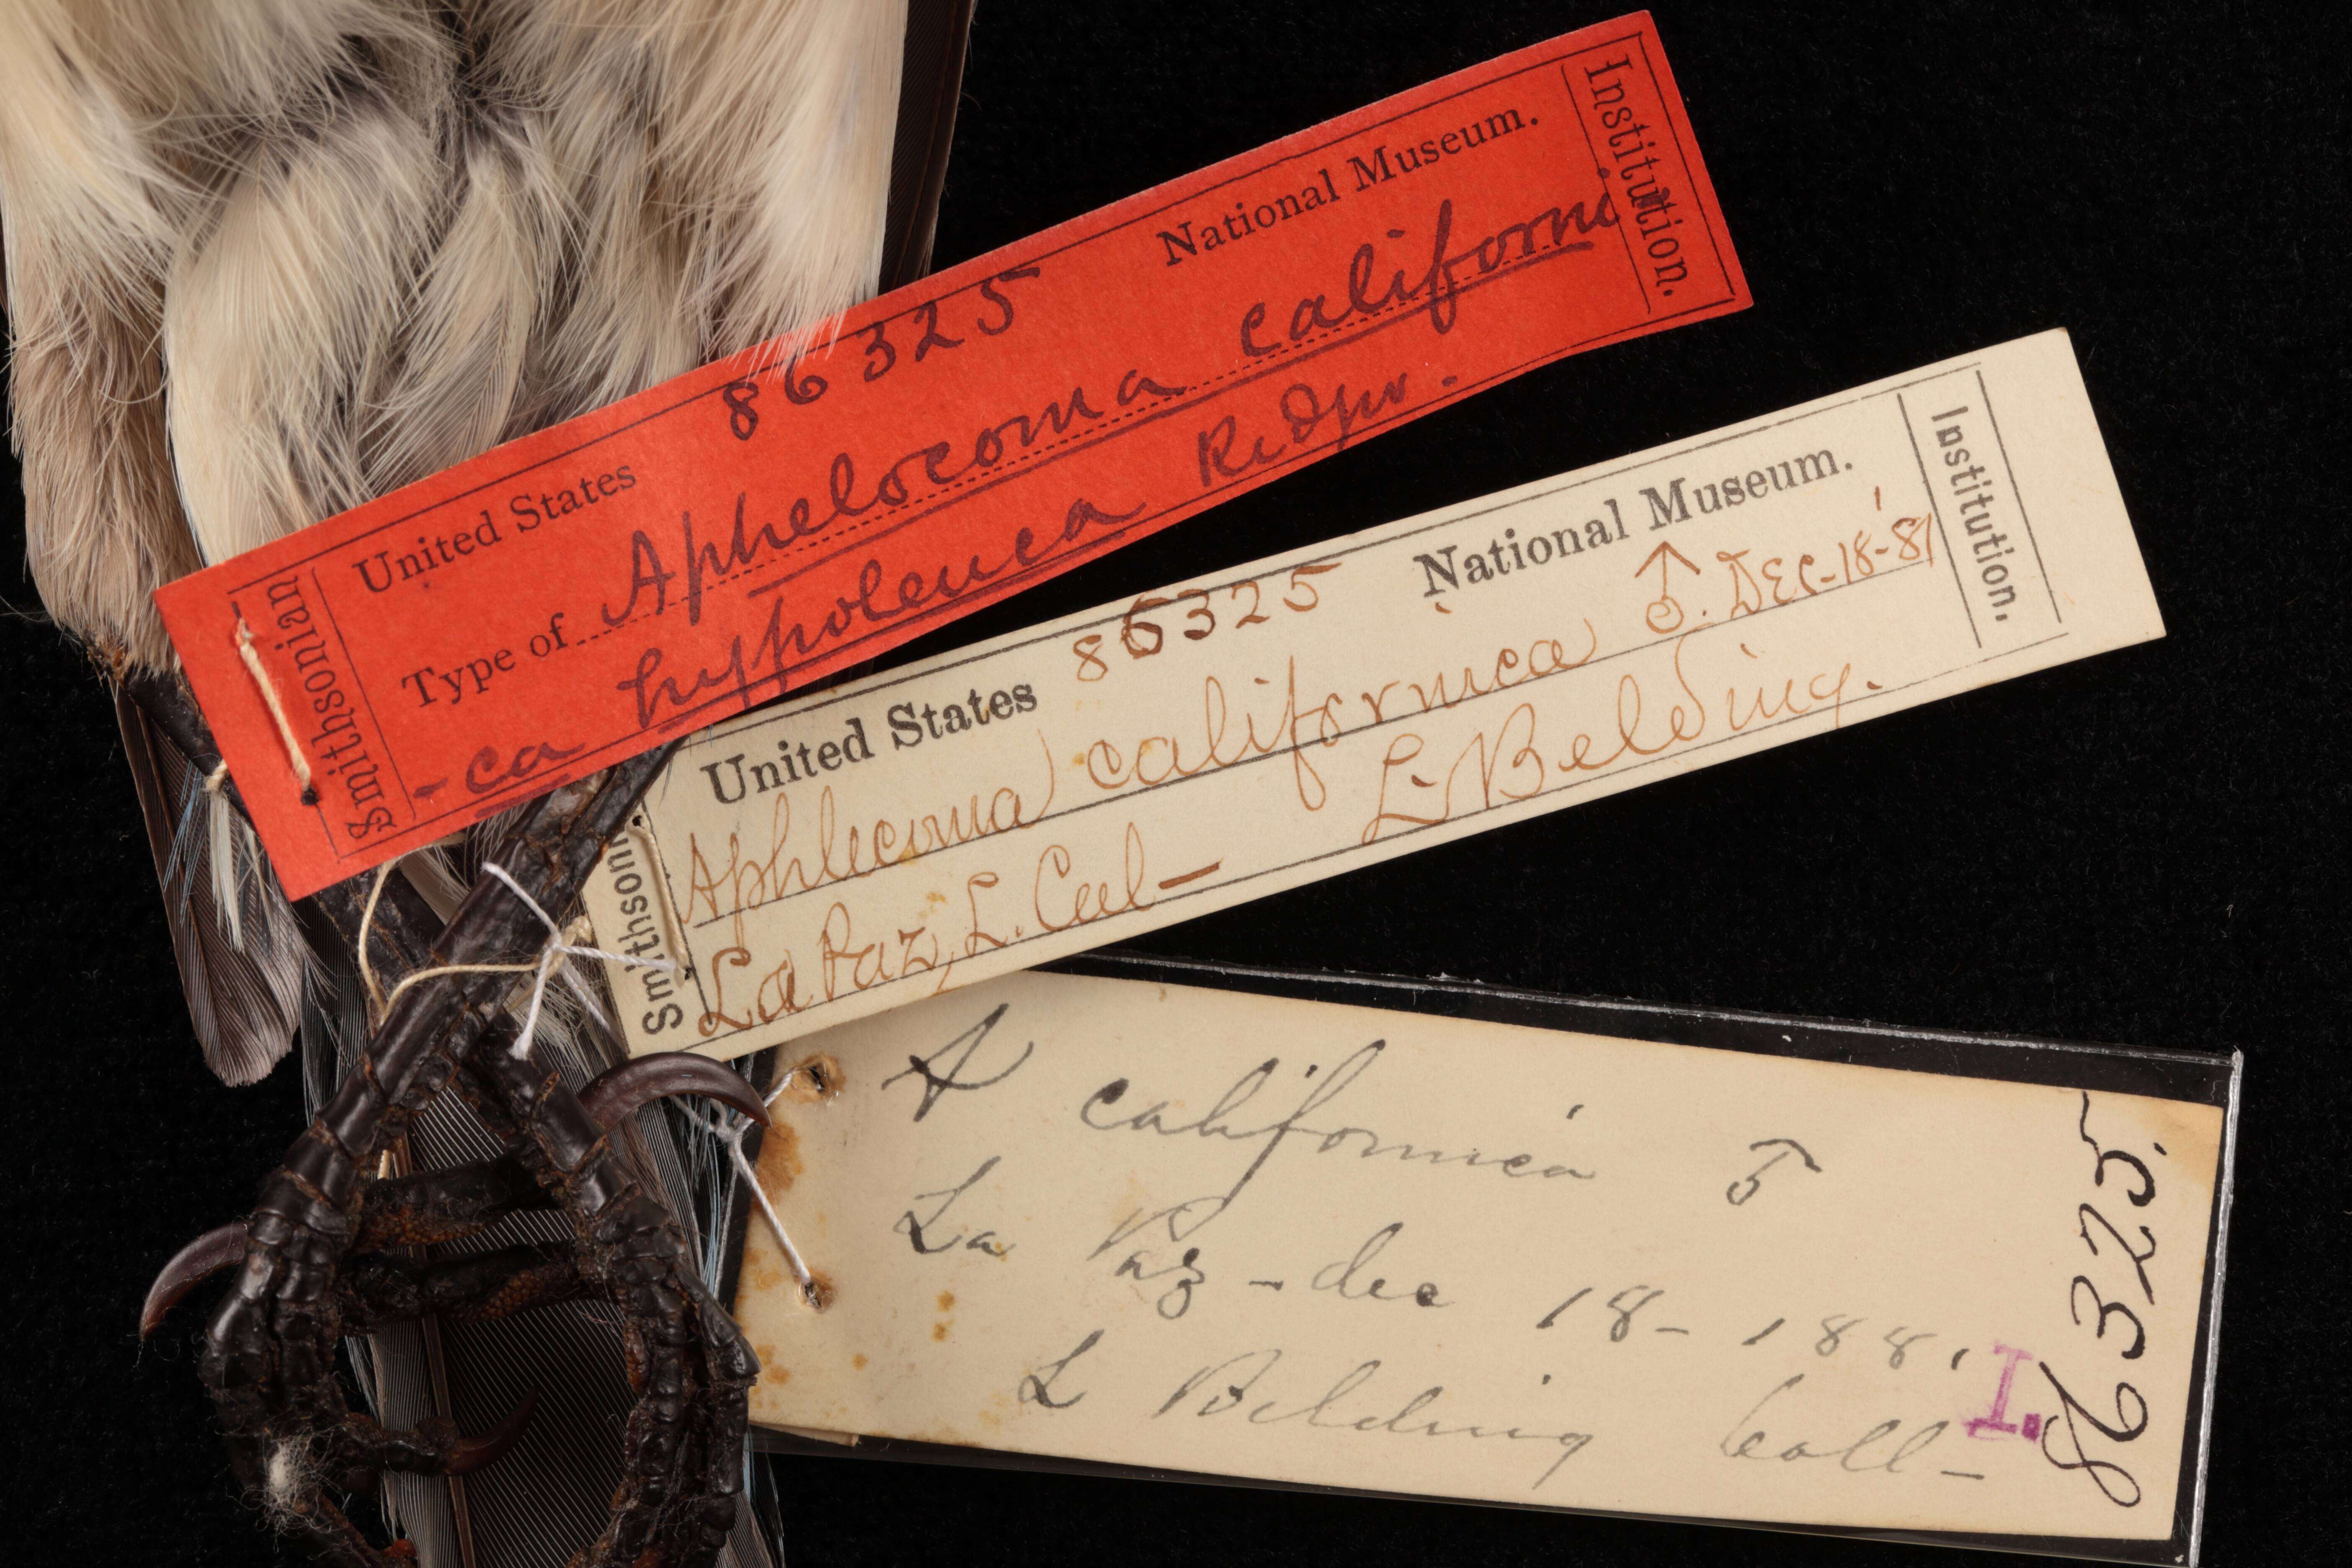 Smithsonian
United States
86325
National Museum.
Institution.
Type of Aphelocoma californi
-ca hypoleuca Ridgw.
Smithsonian
United States
86325
National Museum.
Institution.
Aphlecoma californica ♂. Dec-18-'81
La Paz, L. Cal- L. Belding.
A californica ♂
La Paz - dec 18- 1881
L Belding Coll-
I.
86325.